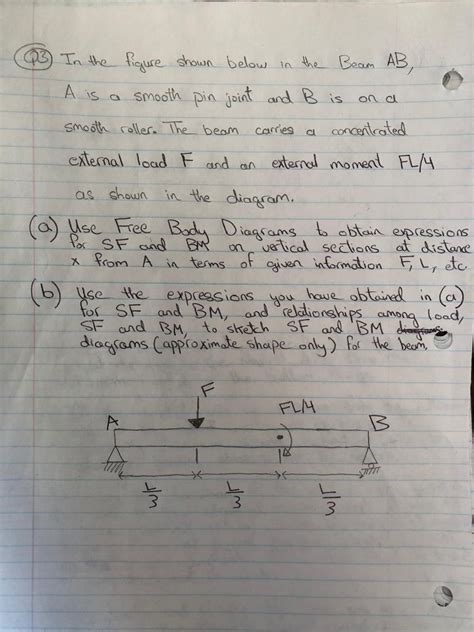 Q3 In the figure shown below in the Beam AB,
A is a smooth pin joint and B is on a
smooth roller. The beam carries a concentrated
external load F and an external moment FL/4
as shown in the diagram.
(a) Use Free Body Diagrams to obtain expressions
for SF and BM on vertical sections at distance
x from A in terms of given information F, L, etc.
(b) Use the expressions you have obtained in (a)
for SF and BM, and relationships among load,
SF and BM, to sketch SF and BM
diagrams (approximate shape only) for the beam.
F
FL/4
A B
L/3 L/3 L/3